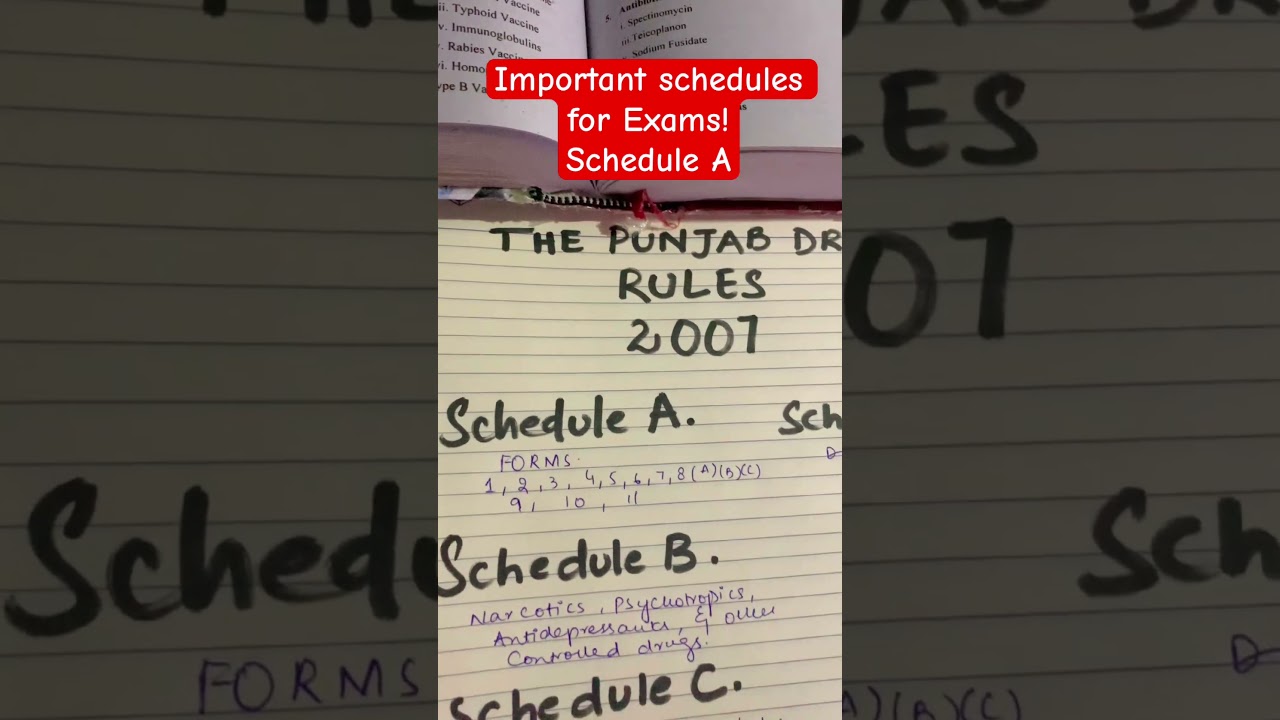 Vaccine
ii. Typhoid Vaccine
v. Immunoglobulins
. Rabies Vaccin
vi. Homo
ype B Va
5. Antibio
i. Spectinomycin
iii. Teicoplanon
Sodium Fusidate
Important schedules
for Exams!
Schedule A
THE PUNJAB DR
RULES
2007
Schedule A.
Sch
FORMS.
1, 2, 3, 4, 5, 6, 7, 8 (A)(B)(C)
9, 10, 11
Schedule B.
Narcotics, Psychotropics,
Antidepressants, & other
Controlled drugs.
Schedule C.